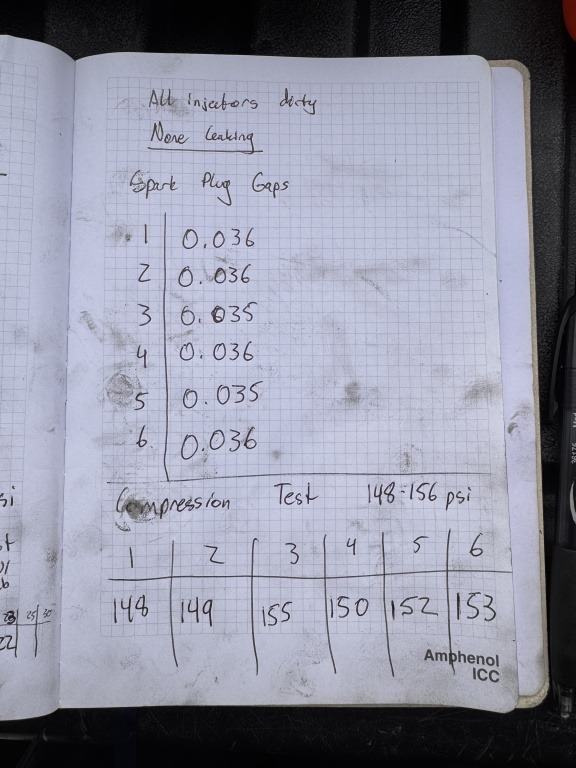 All injectors dirty
None leaking
Spark Plug Gaps
1 0.036
2 0.036
3 0.035
4 0.036
5 0.035
6. 0.036
Compression Test 148-156 psi
1 2 3 4 5 6
148 149 155 150 152 153
Amphenol
ICC